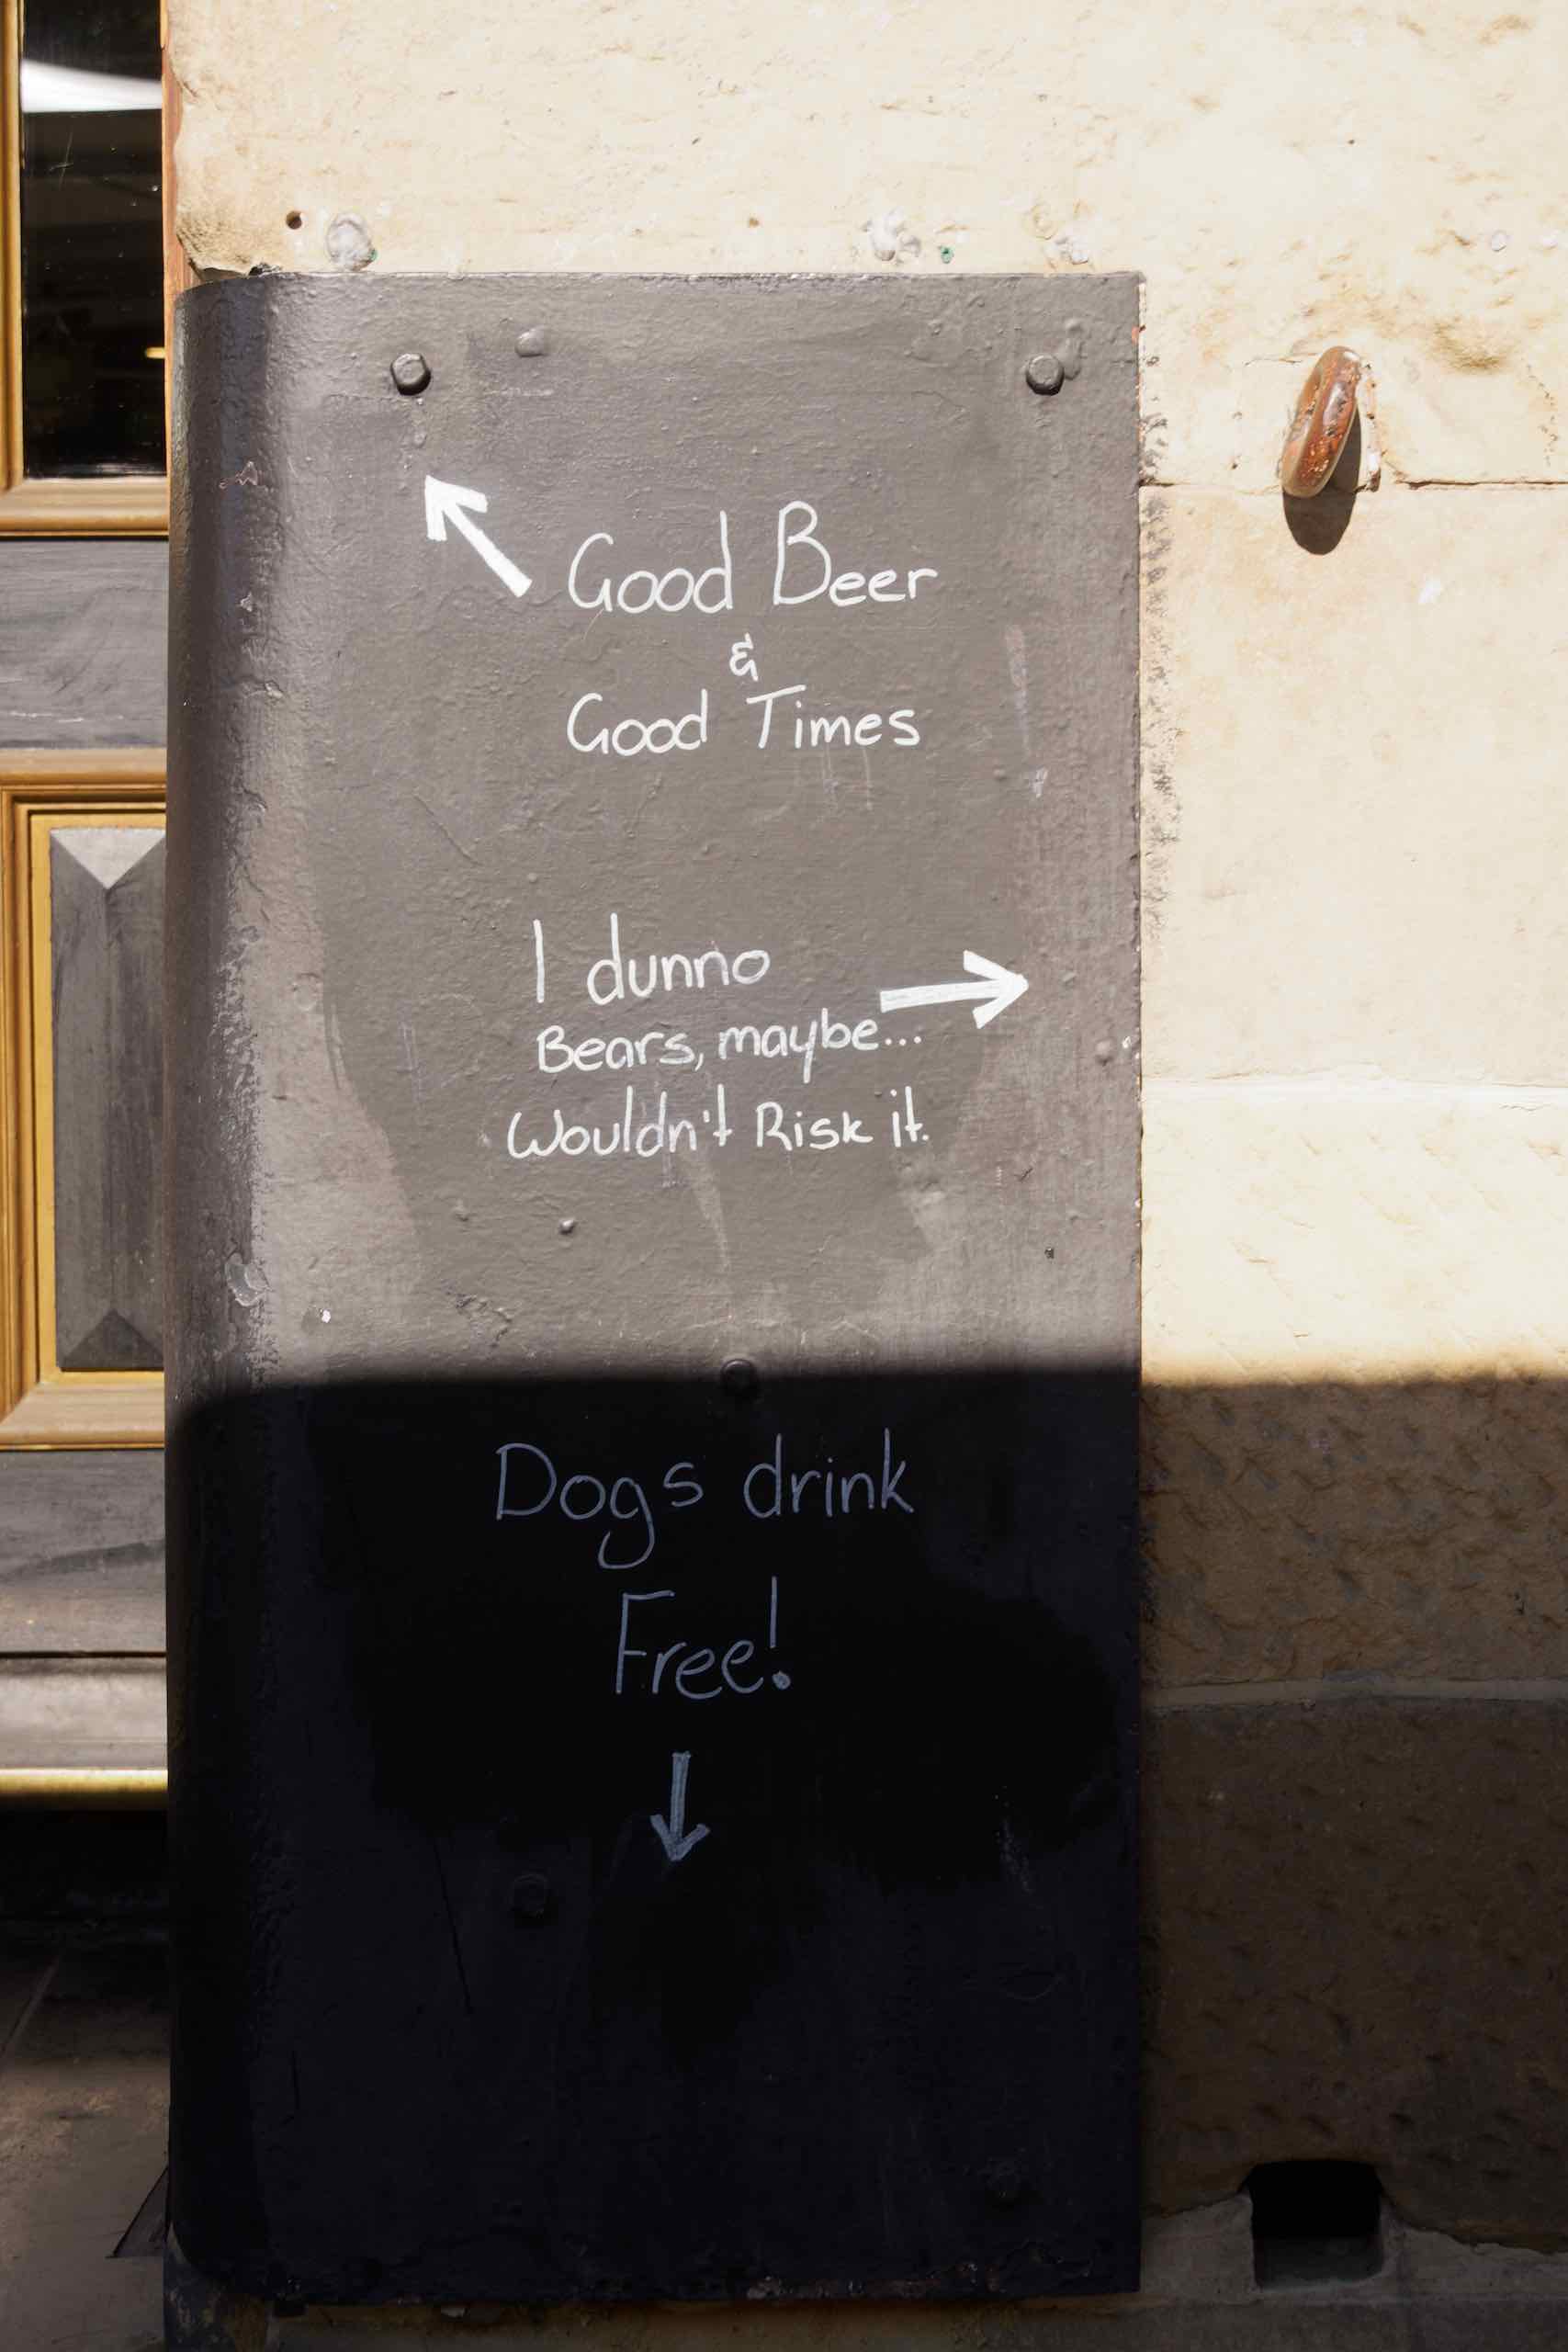 Good Beer
&
Good Times
I dunno
Bears, maybe...
Wouldn't Risk it.
Dogs drink
Free!